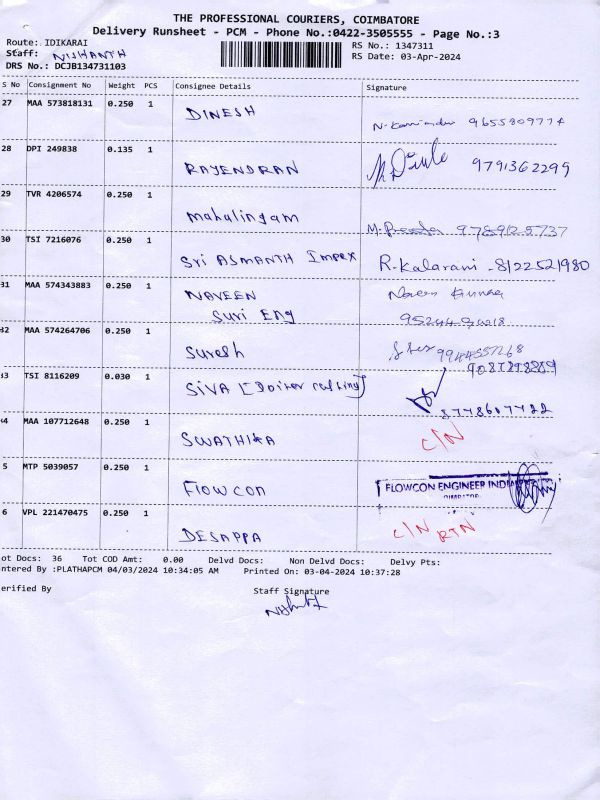 THE PROFESSIONAL COURIERS, COIMBATORE
Delivery Runsheet - PCM - Phone No.:0422-3505555 - Page No.:3
Route: IDIKARAI
RS No.: 1347311
Staff: NISHANTH
RS Date: 03-Apr-2024
DRS No.: DCJB134731103
S No Consignment No Weight PCS Consignee Details Signature
27 MAA 573818131 0.250 1 DINESH
9655809774
28 DPI 249838 0.135 1 RAJENDRAN
9791362299
29 TVR 4206574 0.250 1 mahalingam
30 TSI 7216076 0.250 1 Sri ASMANTH Impex R.Kalarani - 8122521980
31 MAA 574343883 0.250 1 NAVEEN Naveen Kumar
Suri Eng
32 MAA 574264706 0.250 1 Suresh
33 TSI 8116209 0.030 1 SIVA
8778607422
34 MAA 107712648 0.250 1 SWATHIKA C/N
5 MTP 5039057 0.250 1 Flowcon FLOWCON ENGINEER
6 VPL 221470475 0.250 1 DESAPPA C/N RTN
ot Docs: 36 Tot COD Amt: 0.00 Delvd Docs: Non Delvd Docs: Delvy Pts:
ntered By :PLATHAPCM 04/03/2024 10:34:05 AM Printed On: 03-04-2024 10:37:28
erified By Staff Signature